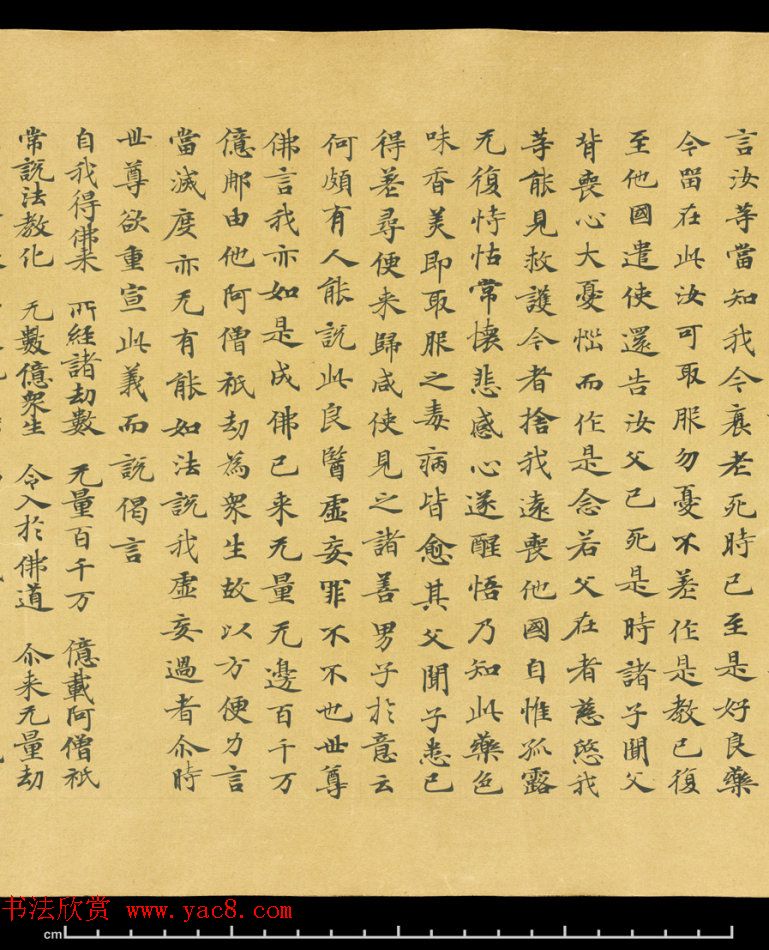 言汝等當知我今衰老死時已至是好良藥
今留在此汝可取服勿憂不差作是教已復
至他國遣使還告汝父已死是時諸子聞父
背喪心大憂惱而作是念若父在者慈愍我
等能見救護今者捨我遠喪他國自惟孤露
无復恃怙常懷悲感心遂醒悟乃知此藥色
味香美即取服之毒病皆愈其父聞子悉已
得差尋便来歸咸使見之諸善男子於意云
何頗有人能說此良醫虛妄罪不不也世尊
佛言我亦如是成佛已来无量无邊百千万
億那由他阿僧祇劫為眾生故以方便力言
當滅度亦无有能如法說我虛妄過者尒時
世尊欲重宣此義而說偈言
自我得佛来 所經諸劫數 无量百千万 億載阿僧祇
常說法教化 无數億眾生 令入於佛道 尒来无量劫
书法欣赏 www.yac8.com
cm